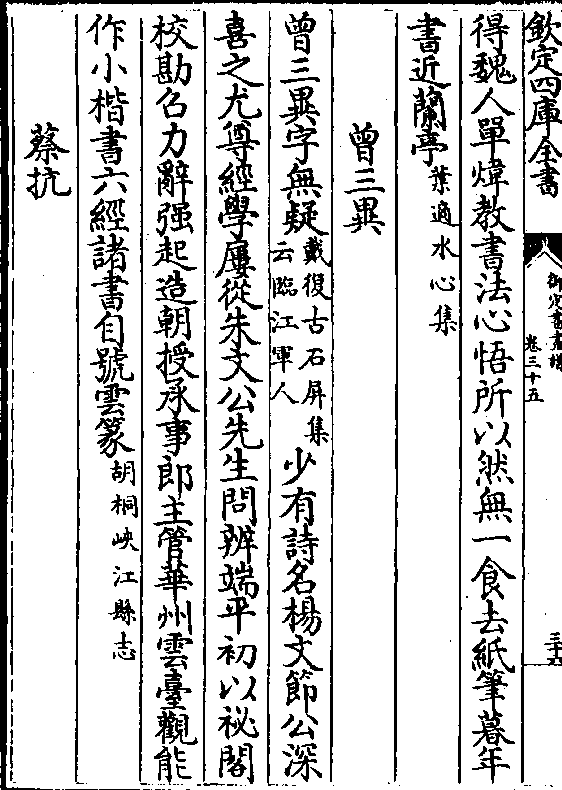 欽定四庫全書
御定書畫譜
卷三十五
三十六
得魏人單煒教書法心悟所以然無一食去紙筆暮年
書近蘭亭葉適水心集
曾三異
曾三異字無疑戴復古石屏集云臨江軍人少有詩名楊文節公深
喜之尤尊經學屢從朱文公先生問辨端平初以祕閣
校勘召力辭强起造朝授承事郎主管華州雲臺觀能
作小楷書六經諸書自號雲篆胡桐峽江縣志
蔡抗